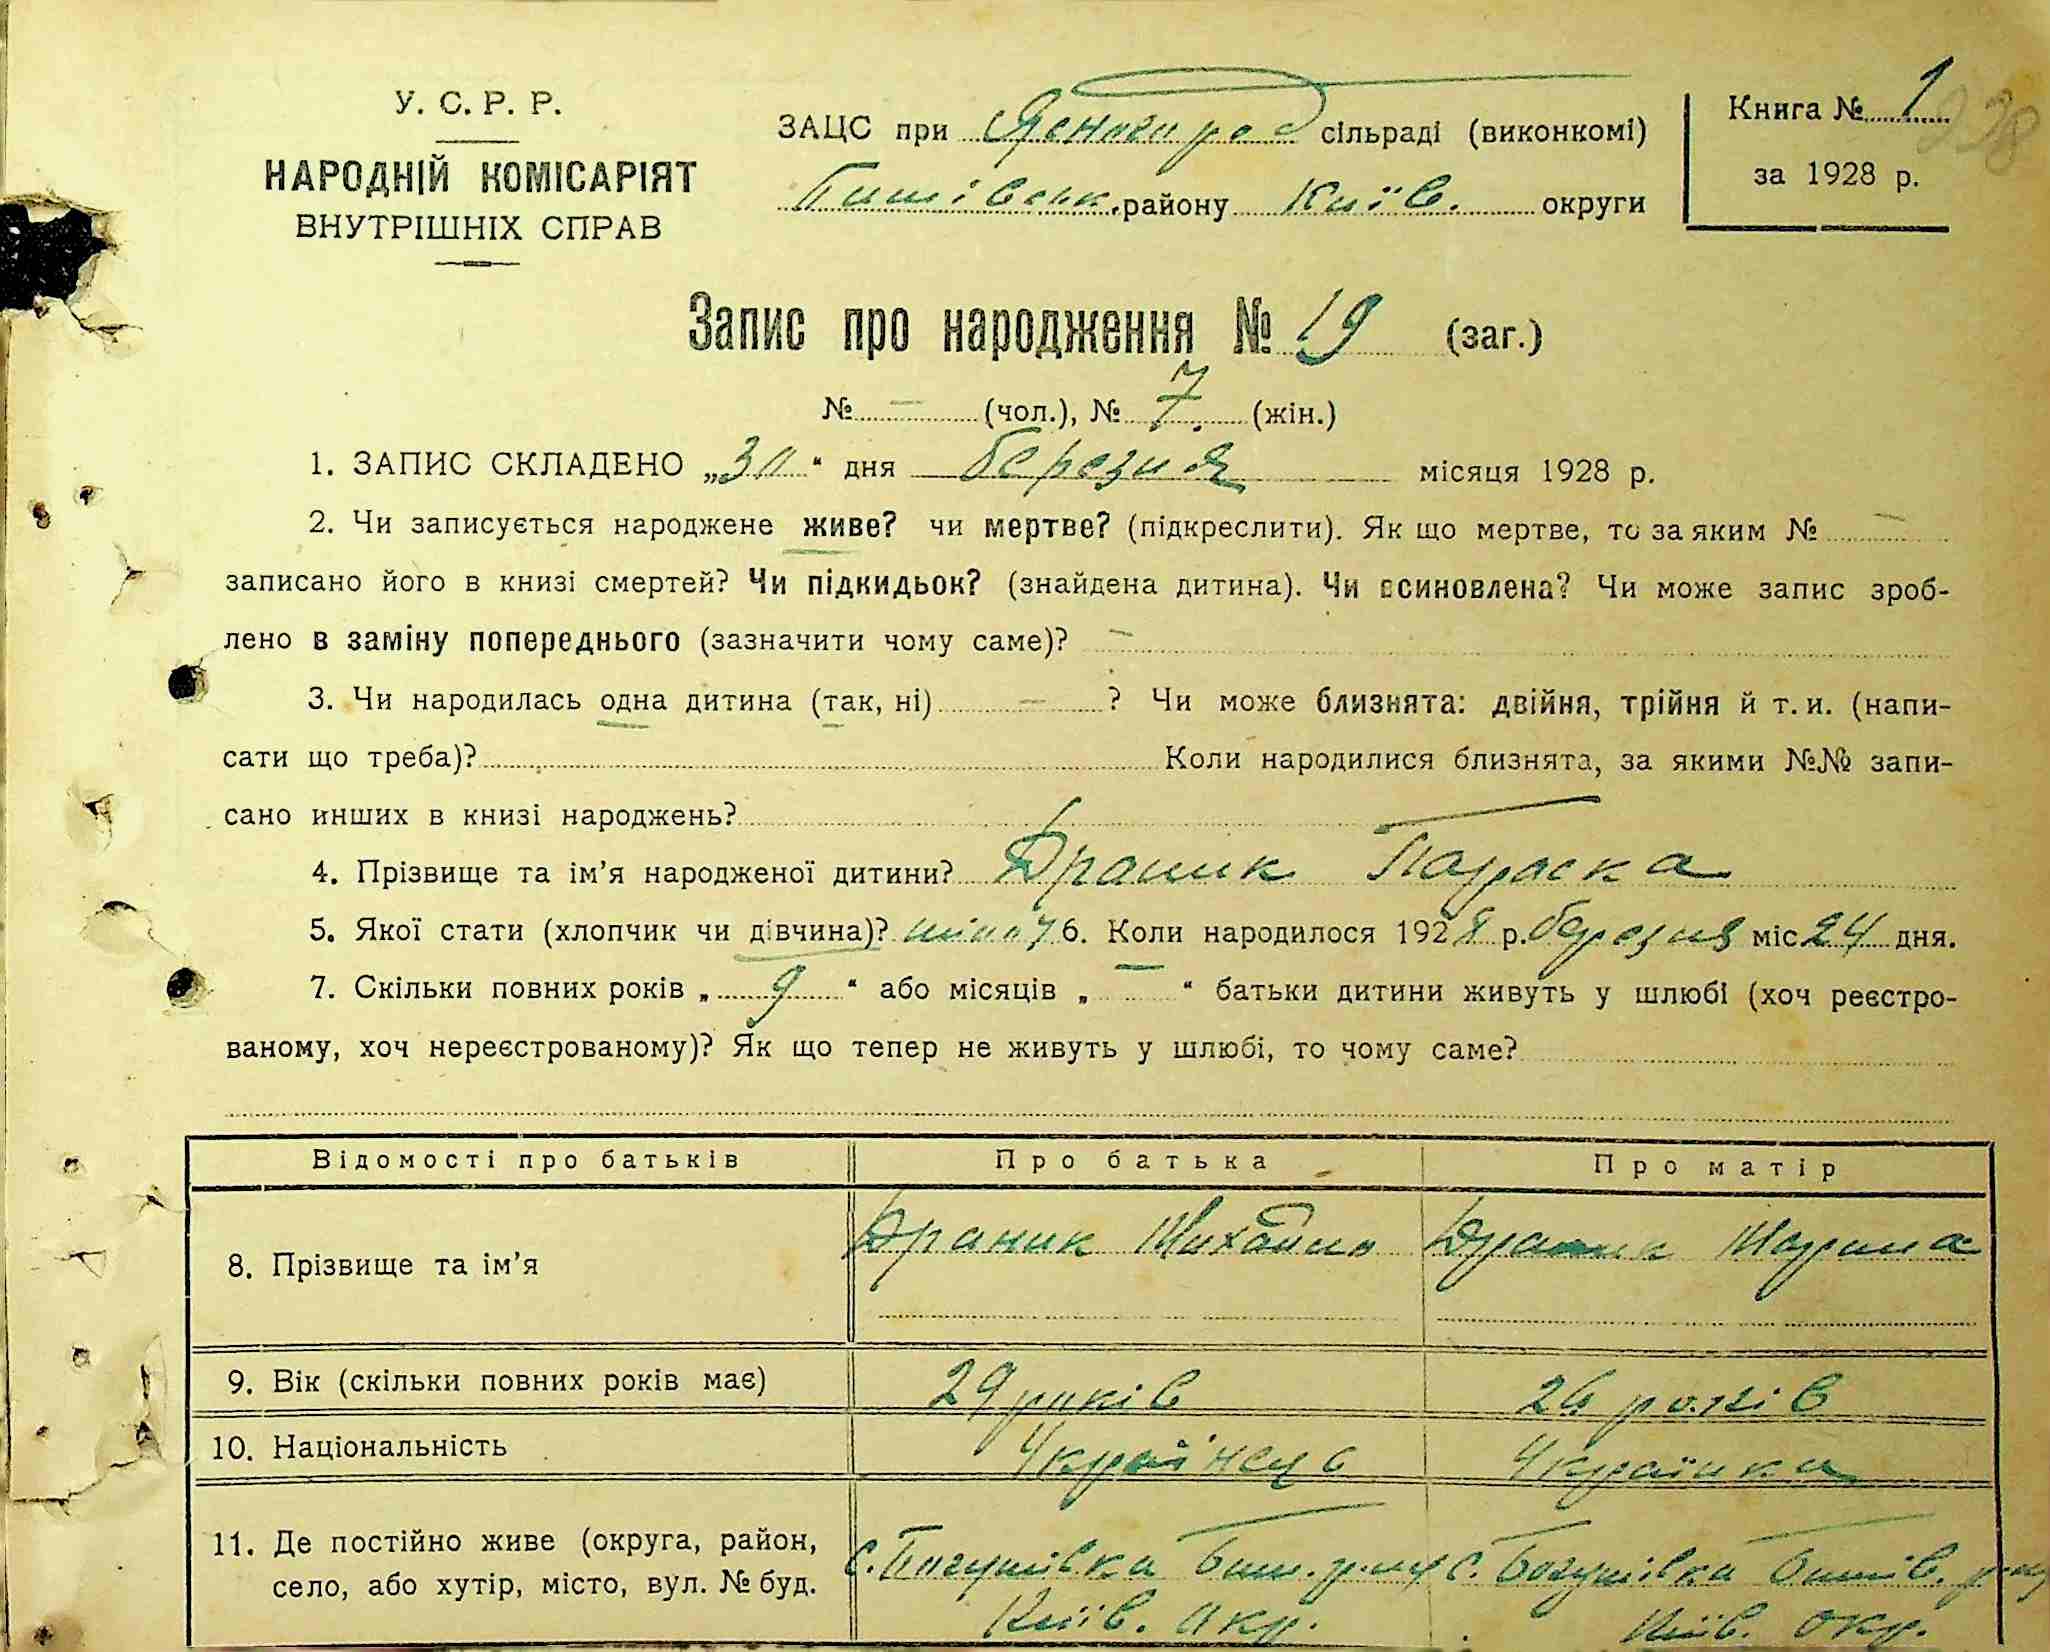 У. С. Р. Р.
НАРОДНІЙ КОМІСАРІЯТ
ВНУТРІШНІХ СПРАВ
ЗАЦС при сільраді (виконкомі)
району Київ. округи
Книга № 1
за 1928 р.
238
Запис про народження № 19 (заг.)
№ — (чол.), № 7 (жін.)
1. ЗАПИС СКЛАДЕНО „30“ дня березня місяця 1928 р.
2. Чи записується народжене живе? чи мертве? (підкреслити). Як що мертве, то за яким № —
записано його в книзі смертей? Чи підкидьок? (знайдена дитина). Чи всиновлена? Чи може запис зроб-
лено в заміну попереднього (зазначити чому саме)? —
3. Чи народилась одна дитина (так, ні) — ? Чи може близнята: двійня, трійня й т. и. (напи-
сати що треба)? Коли народилися близнята, за якими №№ запи-
сано инших в книзі народжень?
4. Прізвище та ім’я народженої дитини? Драник Параска
5. Якої стати (хлопчик чи дівчина)? 6. Коли народилося 1928 р. березня міс 24 дня.
7. Скільки повних років „ 9 “ або місяців „ — “ батьки дитини живуть у шлюбі (хоч реєстро-
ваному, хоч нереєстрованому)? Як що тепер не живуть у шлюбі, то чому саме?
Відомості про батьків Про батька Про матір
8. Прізвище та ім’я Драник Михайло Драник Марина
9. Вік (скільки повних років має) 29 років років
10. Національність Українець Українка
11. Де постійно живе (округа, район, с. Богушівка Биш. р-ну с. Богушівка Бишів. р-ну
село, або хутір, місто, вул. № буд. Київ. окр. Київ. окр.